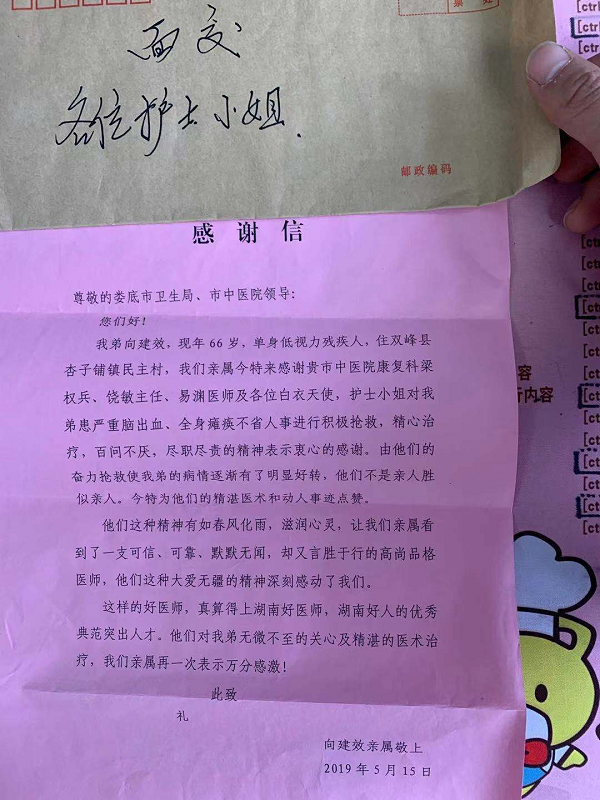 票 处
面交
各位护士小姐.
邮政编码
感谢信
尊敬的娄底市卫生局、市中医院领导:
您们好!
我弟向建效，现年66岁，单身低视力残疾人，住双峰县
杏子铺镇民主村，我们亲属今特来感谢贵市中医院康复科梁
权兵、饶敏主任、易渊医师及各位白衣天使，护士小姐对我
弟患严重脑出血、全身瘫痪不省人事进行积极抢救，精心治
疗，百问不厌，尽职尽责的精神表示衷心的感谢。由他们的
奋力抢救使我弟的病情逐渐有了明显好转，他们不是亲人胜
似亲人。今特为他们的精湛医术和动人事迹点赞。
他们这种精神有如春风化雨，滋润心灵，让我们亲属看
到了一支可信、可靠、默默无闻，却又言胜于行的高尚品格
医师，他们这种大爱无疆的精神深刻感动了我们。
这样的好医师，真算得上湖南好医师，湖南好人的优秀
典范突出人才。他们对我弟无微不至的关心及精湛的医术治
疗，我们亲属再一次表示万分感激!
此致
礼
向建效亲属敬上
2019年5月15日
[ctrl
[ctrl
[ctrl
[ctrl
[ctrl
[ctrl
[ctrl
容
行内容
[ctrl
[ctrl
[ctrl
[ctrl
[ctrl
[ctrl